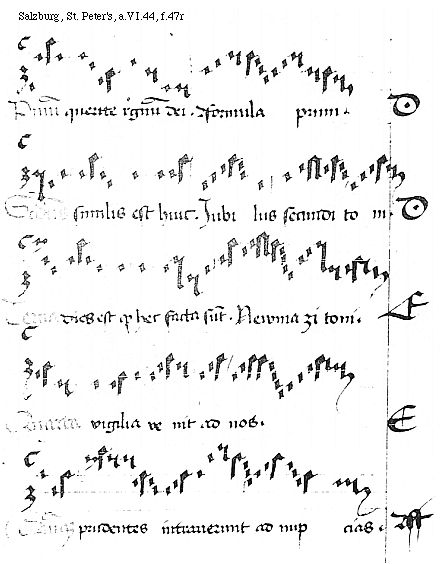 Salzburg, St. Peter's, a.VI.44, f.47r
querite regnum dei. formula primi. D
similis est huic. Jubi lus secundi to ni. D
dies est qͥ hec facta sūt. Newma zi toni. F
vigilia ve nit ad nos. E
prudentes intraverunt ad nup cias.